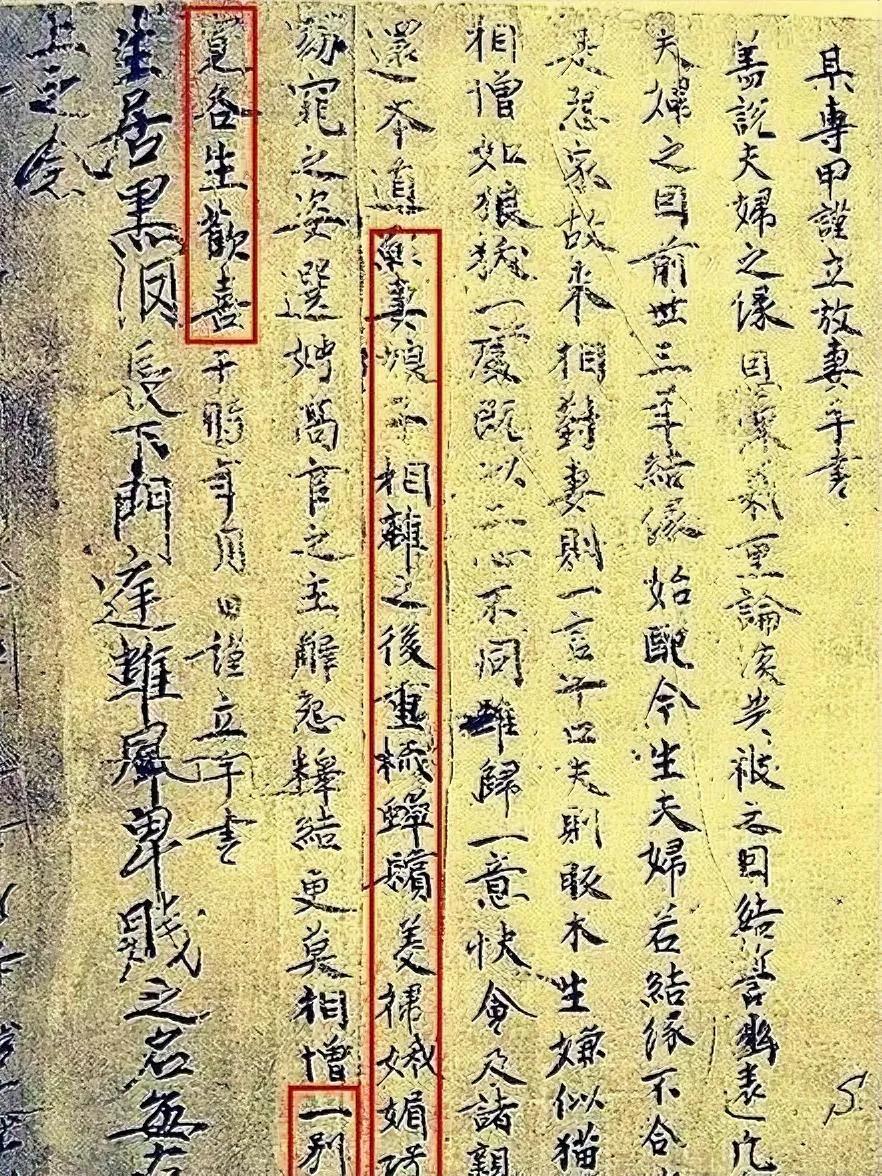 某專甲謹立放妻手書
蓋説夫婦之緣恩深義重論談共被之因結誓幽遠凡
夫婦之因前世三年結緣始配今生夫婦若結緣不合
是怨家故来相對妻則一言十口夫則眅木生嫌似猫
相憎如狼犺一處既以二心不同難歸一意快會及諸親
還本道願妻娘子相離之後重梳蟬鬢美掃娥媚
窈窕之姿選娉高官之主解怨釋結更莫相憎一別
寛各生歡喜于時年月日謹立手書
生居黑 長下門庭雖 卑賤之名無
上之念
S.